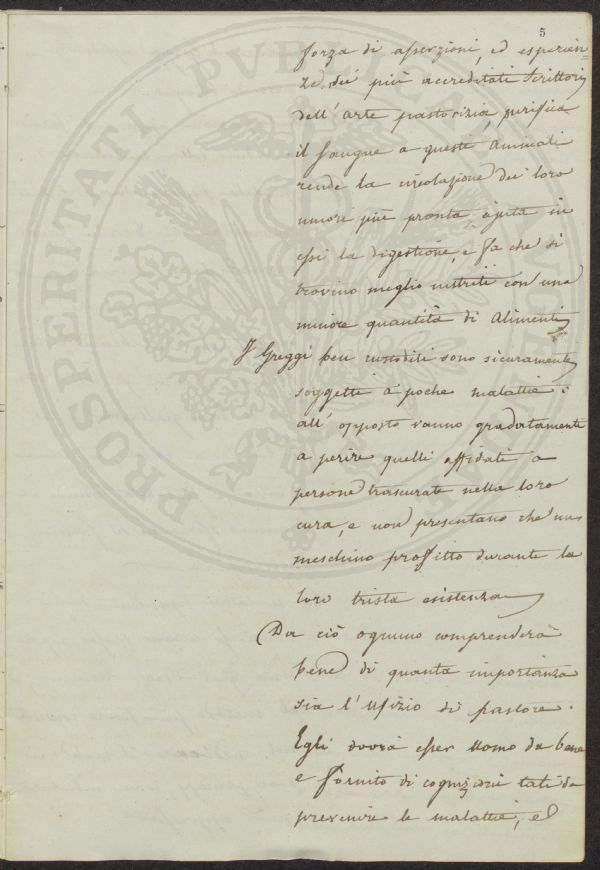 5
forza di asserzioni, ed esperien=
ze dei più accreditati Scrittori
dell'arte pastorizia, purifica
il sangue a questi animali
rende la circolazione dei loro
umori più pronta, ajuta in
essi la digestione, e fa che si
trovino meglio nutriti con una
minore quantità di alimenti
I Greggi ben custoditi sono sicuramente
soggetti a poche malattie:
all'opposto vanno gradatamente
a perire quelli affidati a
persone trascurate nella loro
cura, e non presentano che un
meschino profitto durante la
loro trista esistenza
Da ciò ognuno comprenderà
bene di quanta importanza
sia l'Ufizio di pastore.
Egli dovrà esser Uomo da bene
e fornito di cognizioni tali da
prevenire le malattie, ed
PROSPERITATI PVBLICAE